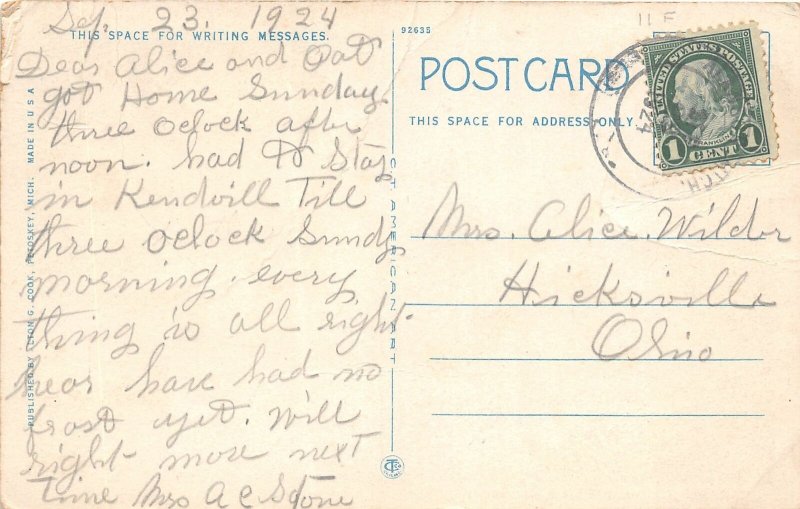 Sep. 23. 1924
THIS SPACE FOR WRITING MESSAGES.
Dear Alice and Pat
got Home Sunday.
three oclock after
noon. had to Stay
in Kendvill Till
three oclock Sundy
morning. every
thing is all right
hear have had no
frost yet. Will
right more next
time Mrs A C Stone
PUBLISHED BY ELTON G. COOK, PETOSKEY, MICH. MADE IN U S A
C.T. AMERICAN ART
92635
POST CARD
THIS SPACE FOR ADDRESS ONLY
UNITED STATES POSTAGE
FRANKLIN
1 CENT 1
MICH.
Mrs. Alice. Wilder
Hicksville
Ohio